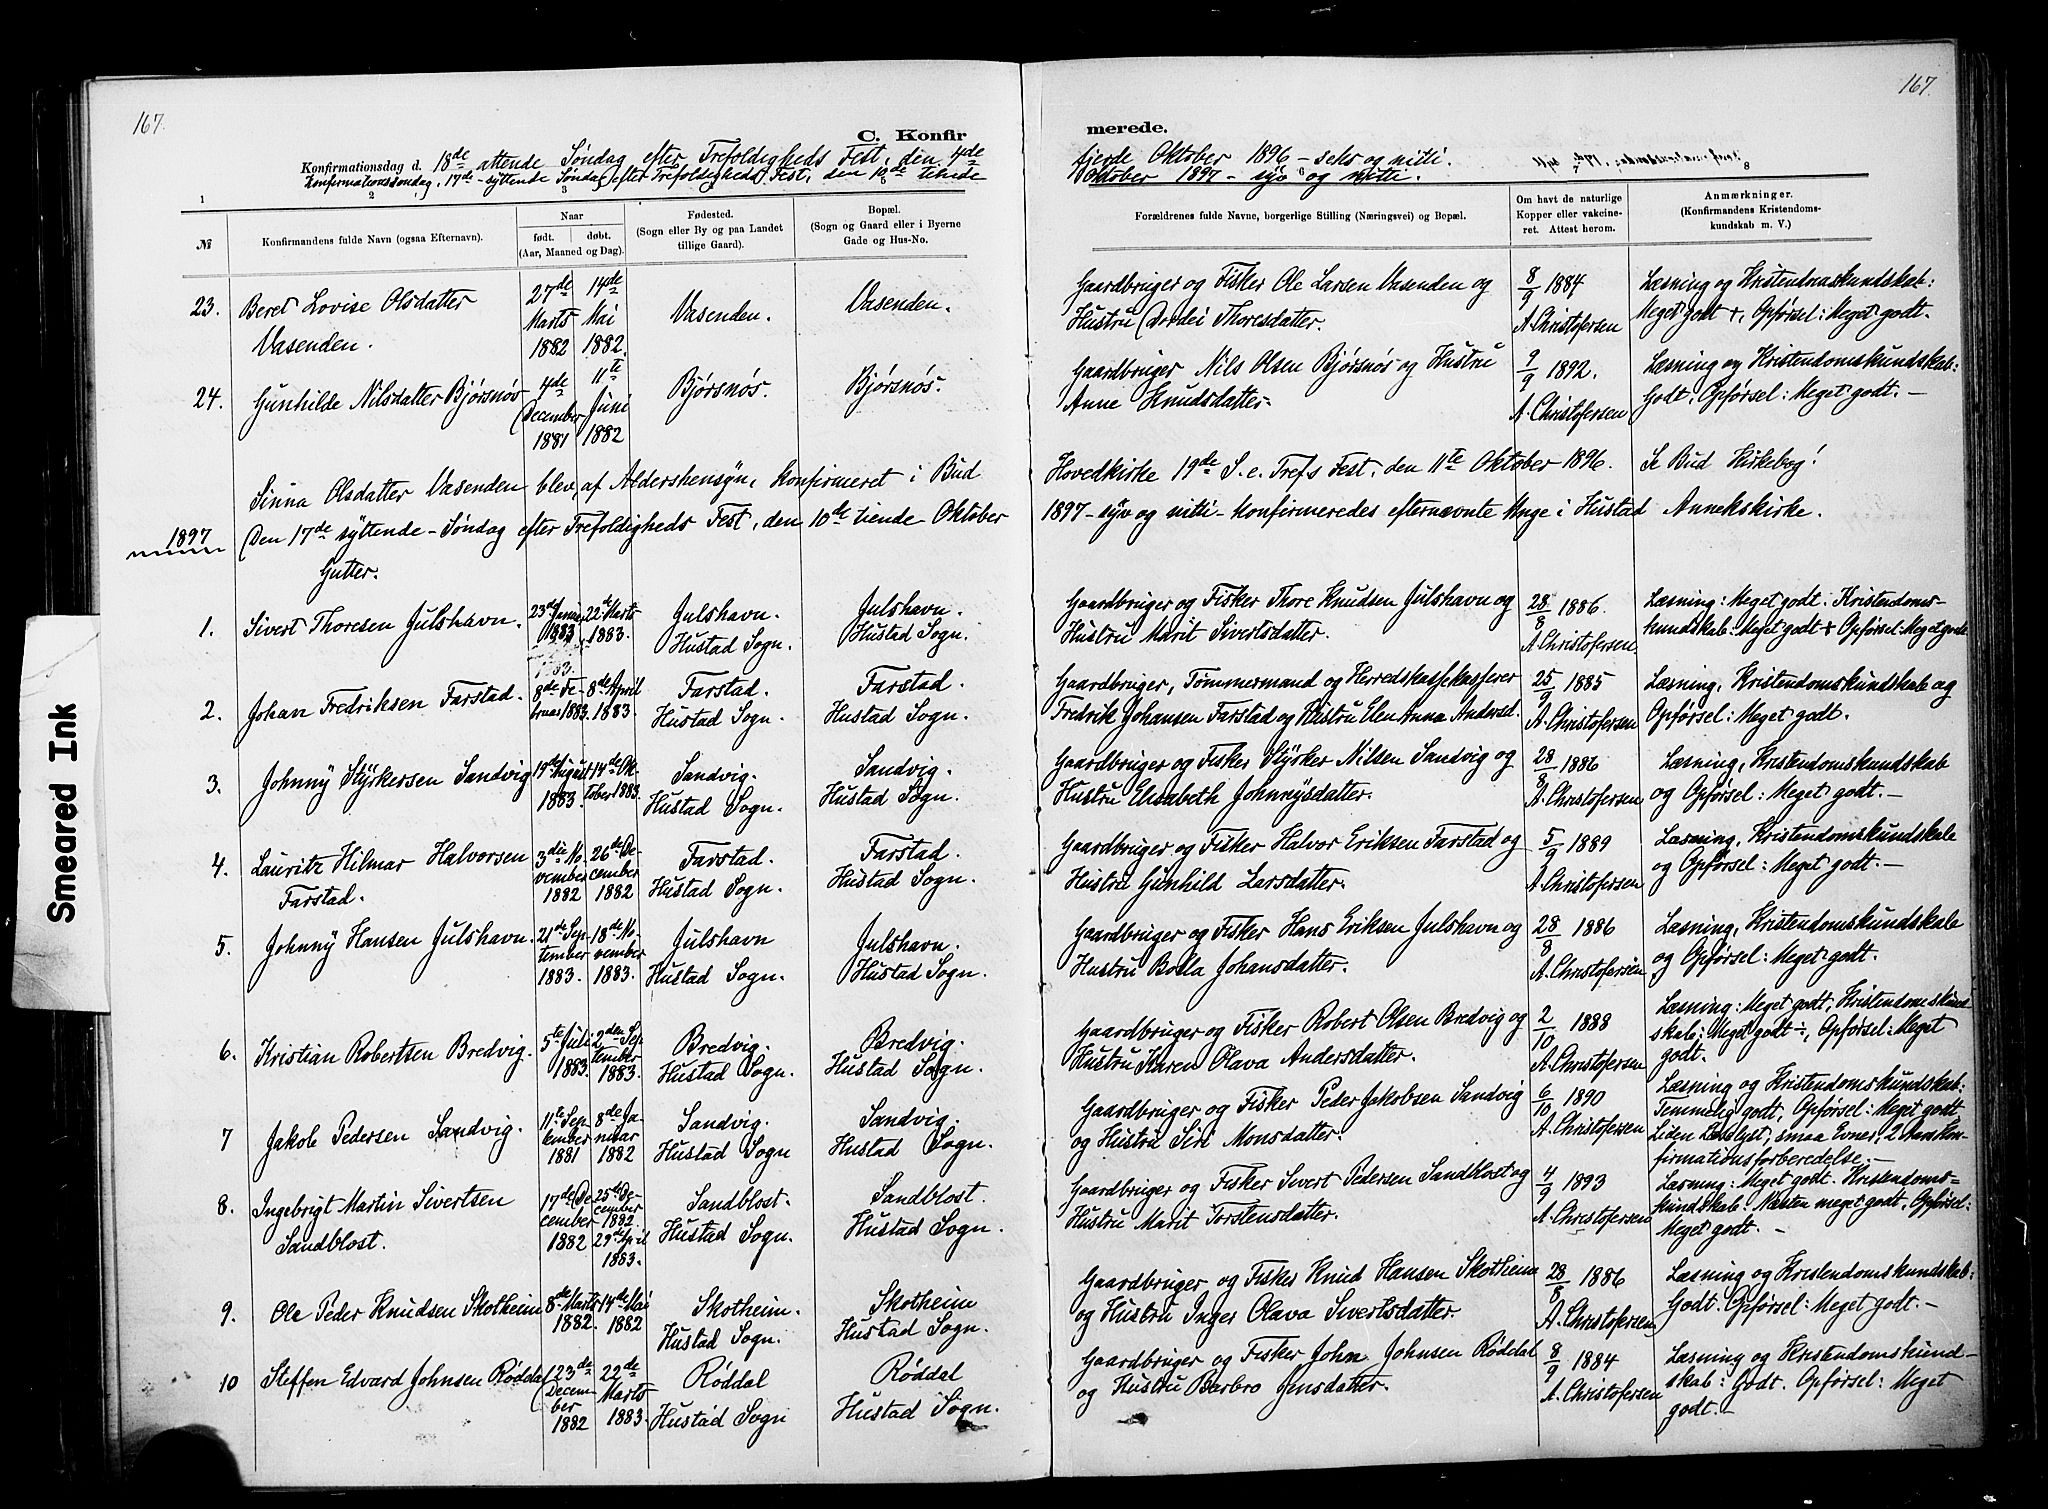 167.
167.
C. Konfir
merede.
Konfirmationsdag d. 18de attende Søndag efter Trefoldigheds Fest, den 4de
fjerde Oktober 1896 – seks og nitti.
Konfirmationssøndag, 17de – syttende Søndag efter Trefoldigheds Fest, den 10de tiende
Oktober 1897 – syv og nitti.
1 2 3 4 5 6 7 8
№
Konfirmandens fulde Navn (ogsaa Efternavn).
Naar
født. døbt.
(Aar, Maaned og Dag).
Fødested.
(Sogn eller By og paa Landet
tillige Gaard).
Bopæl.
(Sogn og Gaard eller i Byerne
Gade og Hus-No.
Forældrenes fulde Navne, borgerlige Stilling (Næringsvei) og Bopæl.
Om havt de naturlige
Kopper eller vakcine-
ret. Attest herom.
Anmærkninger.
(Konfirmandens Kristendoms-
kundskab m. V.)
23. Beret Lovise Olsdatter
Vasenden.
27de
Marts
1882
14de
Mai
1882.
Vasenden.
Vasenden.
Gaardbruger og Fisker Ole Larsen Vasenden og
Hustru Dordei Thoresdatter.
8/9 1884
A. Christofersen
Læsning og Kristendomskundskab:
Meget godt +, Opførsel: Meget godt.
24. Gunhilde Nilsdatter Bjørsnøs
4de
December
1881
11te
Juni
1882
Bjørsnøs.
Bjørsnøs.
Gaardbruger Nils Olsen Bjørsnøs og Hustru
Anne Knudsdatter.
9/9 1892.
A. Christofersen
Læsning og Kristendomskundskab:
Godt, Opførsel: Meget godt. –
Sinna Olsdatter Vasenden blev, af Aldershensyn, konfirmeret i Bud
Hovedkirke 19de S. e. Trefs Fest, den 11te Oktober 1896. Se Bud Kirkebog!
1897 Den 17de syttende – Søndag efter Trefoldigheds Fest, den 10de tiende Oktober
1897 – syv og nitti – konfirmeredes efternævnte Unge i Hustad Annekskirke.
Gutter.
1. Sivert Thoresen Julshavn.
23de Januar
1883
1883.
22de Marts
1883.
Julshavn.
Hustad Sogn.
Julshavn.
Hustad Sogn.
Gaardbruger og Fisker Thore Knudsen Julshavn og
Hustru Marit Sivertsdatter.
28/8 1886.
A. Christofersen
Læsning: Meget godt. Kristendoms-
kundskab: Meget godt + Opførsel: Meget godt
2. Johan Fredriksen Farstad.
8de Fe-
bruar 1883.
8de April
1883.
Farstad.
Hustad Sogn.
Farstad.
Hustad Sogn.
Gaardbruger, Tømmermand og Herredskassekasserer
Fredrik Johansen Farstad og Hustru Elen Anna Andersd.
25/9 1885
A. Christofersen
Læsning, Kristendomskundskab og
Opførsel: Meget godt.
3. Johnny Styrkersen Sandvig
19de August
1883.
14de Ok-
tober 1883.
Sandvig.
Hustad Sogn.
Sandvig.
Hustad Sogn.
Gaardbruger og Fisker Styrker Nilsen Sandvig og
Hustru Elisabeth Johnnysdatter.
28/8 1886
A. Christofersen
Læsning, Kristendomskundskab
og Opførsel: Meget godt. –
4. Lauritz Hilmar Halvorsen
Farstad.
3die No-
vember
1882
26de De-
cember
1882
Farstad.
Hustad Sogn.
Farstad.
Hustad Sogn.
Gaardbruger og Fisker Halvor Eriksen Farstad og
Hustru Gunhild Larsdatter.
5/9 1889
A. Christofersen
Læsning, Kristendomskundskab
og Opførsel: Meget godt. –
5. Johnny Hansen Julshavn.
21de Sep-
tember
1883.
18de No-
vember
1883.
Julshavn
Hustad Sogn.
Julshavn.
Hustad Sogn.
Gaardbruger og Fisker Hans Eriksen Julshavn og
Hustru Bolla Johansdatter.
28/8 1886
A. Christofersen
Læsning, Kristendomskundskab
og Opførsel: Meget godt.
6. Kristian Robertsen Bredvig.
5te Juli
1883.
2den Sep-
tember
1883.
Bredvig.
Hustad Sogn.
Bredvig.
Hustad Sogn.
Gaardbruger og Fisker Robert Olsen Bredvig og
Hustru Karen Olava Andersdatter.
2/10 1888
A. Christofersen
Læsning: Meget godt, Kristendomskund-
skab: Meget godt ÷, Opførsel: Meget
godt.
7 Jakob Pedersen Sandvig.
11te Sep-
tember
1881
8de Ja-
nuar
1882
Sandvig.
Hustad Sogn
Sandvig.
Hustad Sogn.
Gaardbruger og Fisker Peder Jakobsen Sandvig
og Hustru Siri Monsdatter.
6/10 1890
A. Christofersen
Læsning og Kristendomskundskab:
Temmelig godt, Opførsel: Meget godt
Liden Læselyst, smaa Evner, 2 Aars Kon-
firmationsforberedelse. –
8. Ingebrigt Martin Sivertsen
Sandblost.
17de De-
cember
1882
25de De-
cember
1882.
29de April
1883.
Sandblost.
Hustad Sogn.
Sandblost.
Hustad Sogn.
Gaardbruger og Fisker Sivert Pedersen Sandblost og
Hustru Marit Torstensdatter.
4/9 1893
A. Christofersen
Læsning: Meget godt. Kristendoms-
kundskab: Næsten meget godt, Opførsel:
Meget godt. –
9. Ole Peder Knudsen Skotheim
8de Marts
1882.
14de Mai
1882
Skotheim.
Hustad Sogn.
Skotheim
Hustad Sogn.
Gaardbruger og Fisker Knud Hansen Skotheim
og Hustru Inger Olava Sivertsdatter.
28/8 1886
A. Christofersen
Læsning og Kristendomskundskab:
Godt. Opførsel: Meget godt. –
10 Steffen Edvard Johnsen Røddal
23de
Decem-
ber
1882
22de
Marts
1883.
Røddal
Hustad Sogn
Røddal
Hustad Sogn.
Gaardbruger og Fisker John Johnsen Røddal
og Hustru Barbro Jensdatter.
8/9 1884
A. Christofersen
Læsning og Kristendomskund-
skab: Godt. Opførsel: Meget
godt. –
Smeared Ink